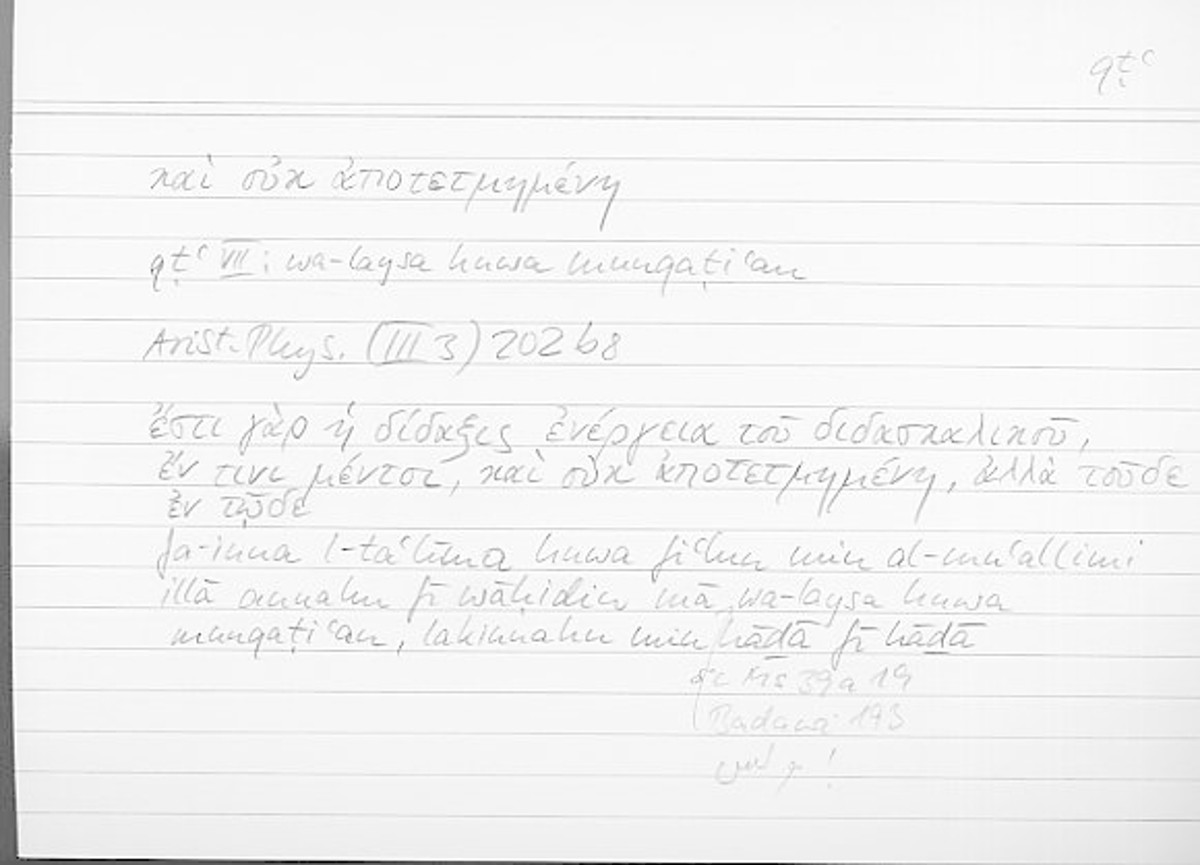 qṭʿ
καὶ οὐκ ἀποτετμημένη
qṭʿ VII: wa-laysa huwa munqaṭiʿan
Arist. Phys. (III 3) 202 b8
ἔστι γὰρ ἡ δίδαξις ἐνέργεια τοῦ διδασκαλικοῦ,
ἔν τινι μέντοι, καὶ οὐκ ἀποτετμημένη, ἀλλὰ τοῦδε
ἐν τῷδε
fa-inna l-taʿlīma huwa fiʿlun min al-muʿallimi
illā annahu fī wāḥidin mā wa-laysa huwa
munqaṭiʿan, lakinnahu min hāḏā fī hāḏā
sic Ms 39a 19
Badawi 193